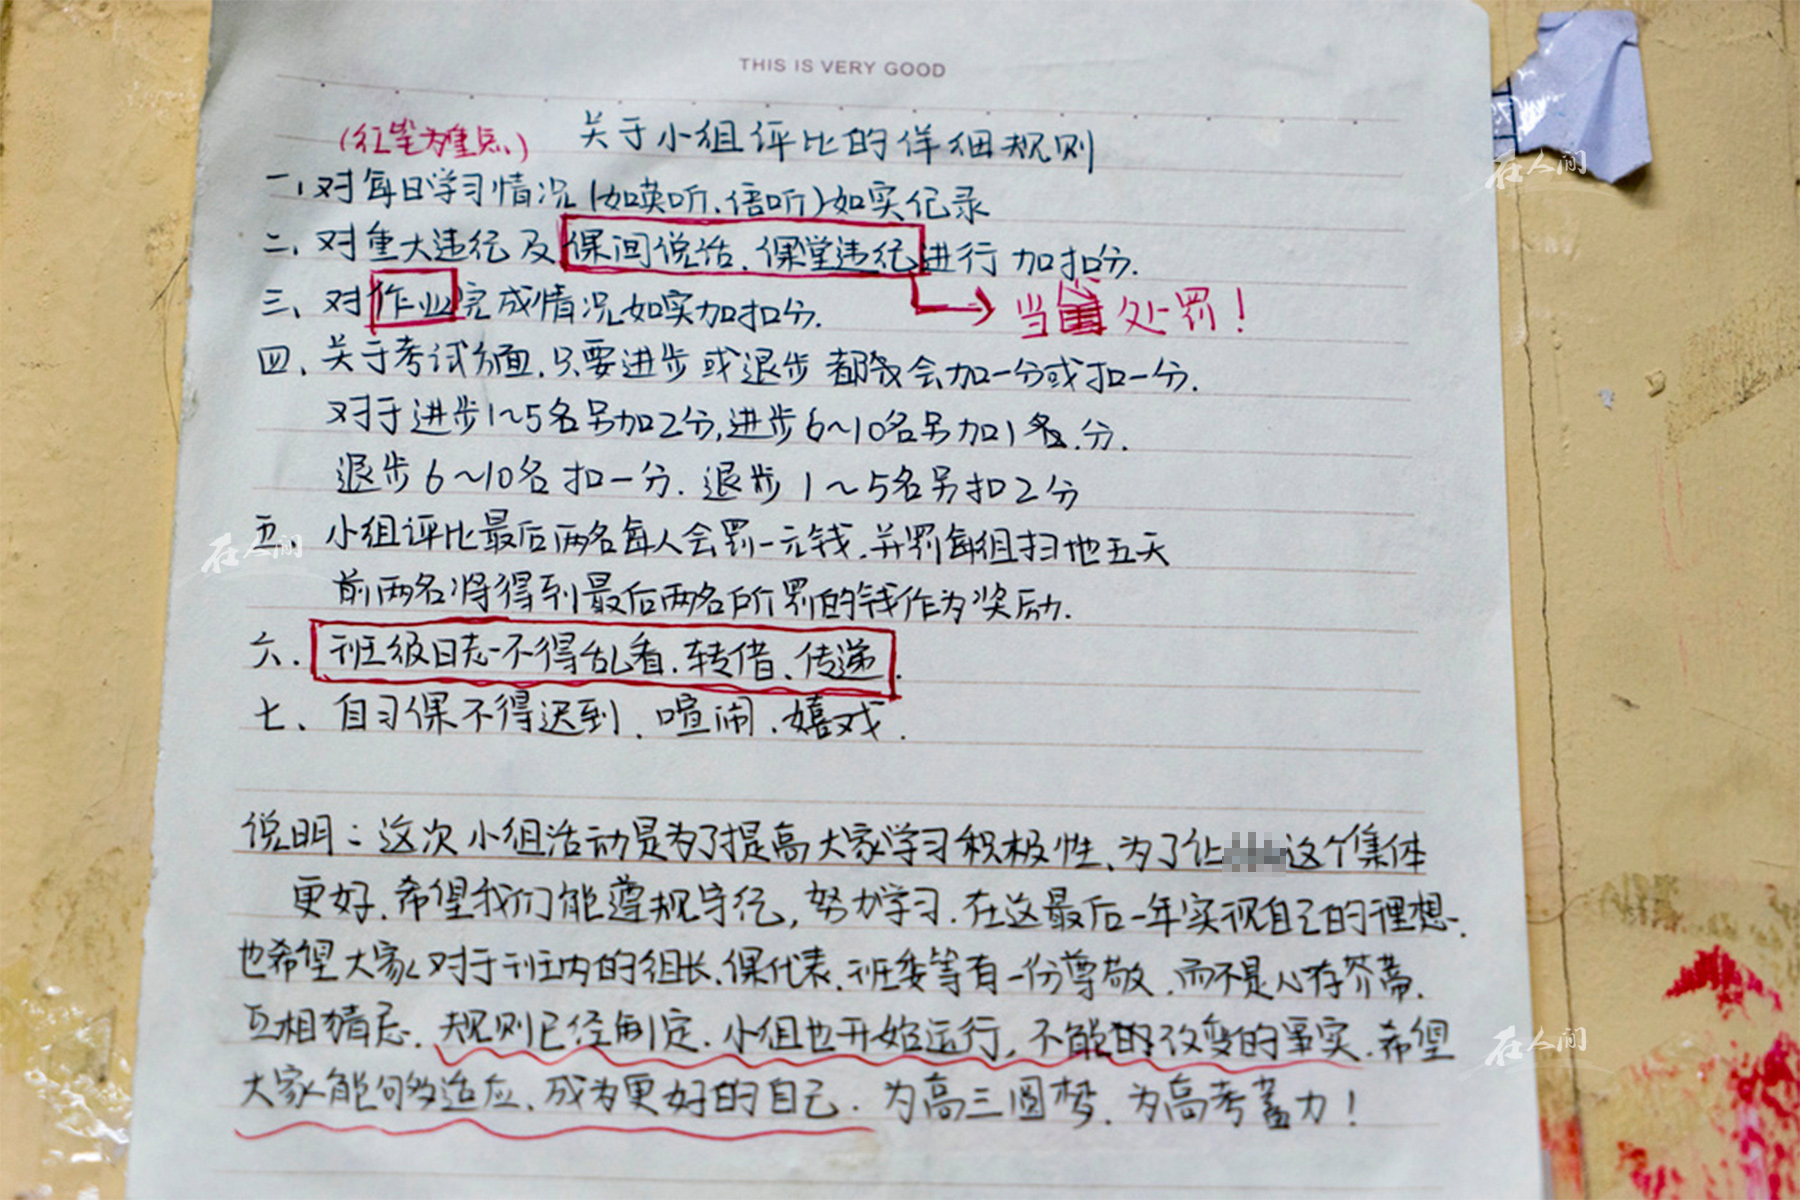 THIS IS VERY GOOD
(红笔为重点、) 关于小组评比的详细规则
一、对每日学习情况(如英听、语听)如实记录
二、对重大违纪及课间说话、课堂违纪进行加扣分.
三、对作业完成情况如实加扣分. 当 处罚!
四、关于考试方面.只要进步或退步都会加一分或扣一分.
对于进步1~5名另加2分,进步6~10名另加1分.
退步6~10名扣一分.退步1~5名另扣2分
五、小组评比最后两名每人会罚一元钱.并罚每组扫地五天
前两名将得到最后两名所罚的钱作为奖励.
六.班级日志不得乱看.转借、传递.
七、自习课不得迟到、喧闹.嬉戏.
说明:这次小组活动是为了提高大家学习积极性、为了让 这个集体
更好.希望我们能遵规守纪,努力学习.在这最后一年实现自己的理想.
也希望大家对于班内的组长.课代表.班委等有一份尊敬.而不是心存芥蒂.
互相猜忌.规则已经制定.小组也开始运行,不能的改变的事实.希望
大家能够适应、成为更好的自己.为高三圆梦、为高考蓄力!
在人间
在人间
在人间